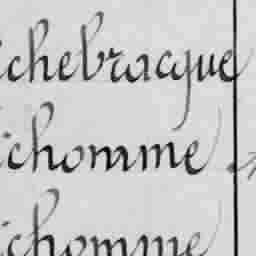 ichebracque
ichomme
ichomme